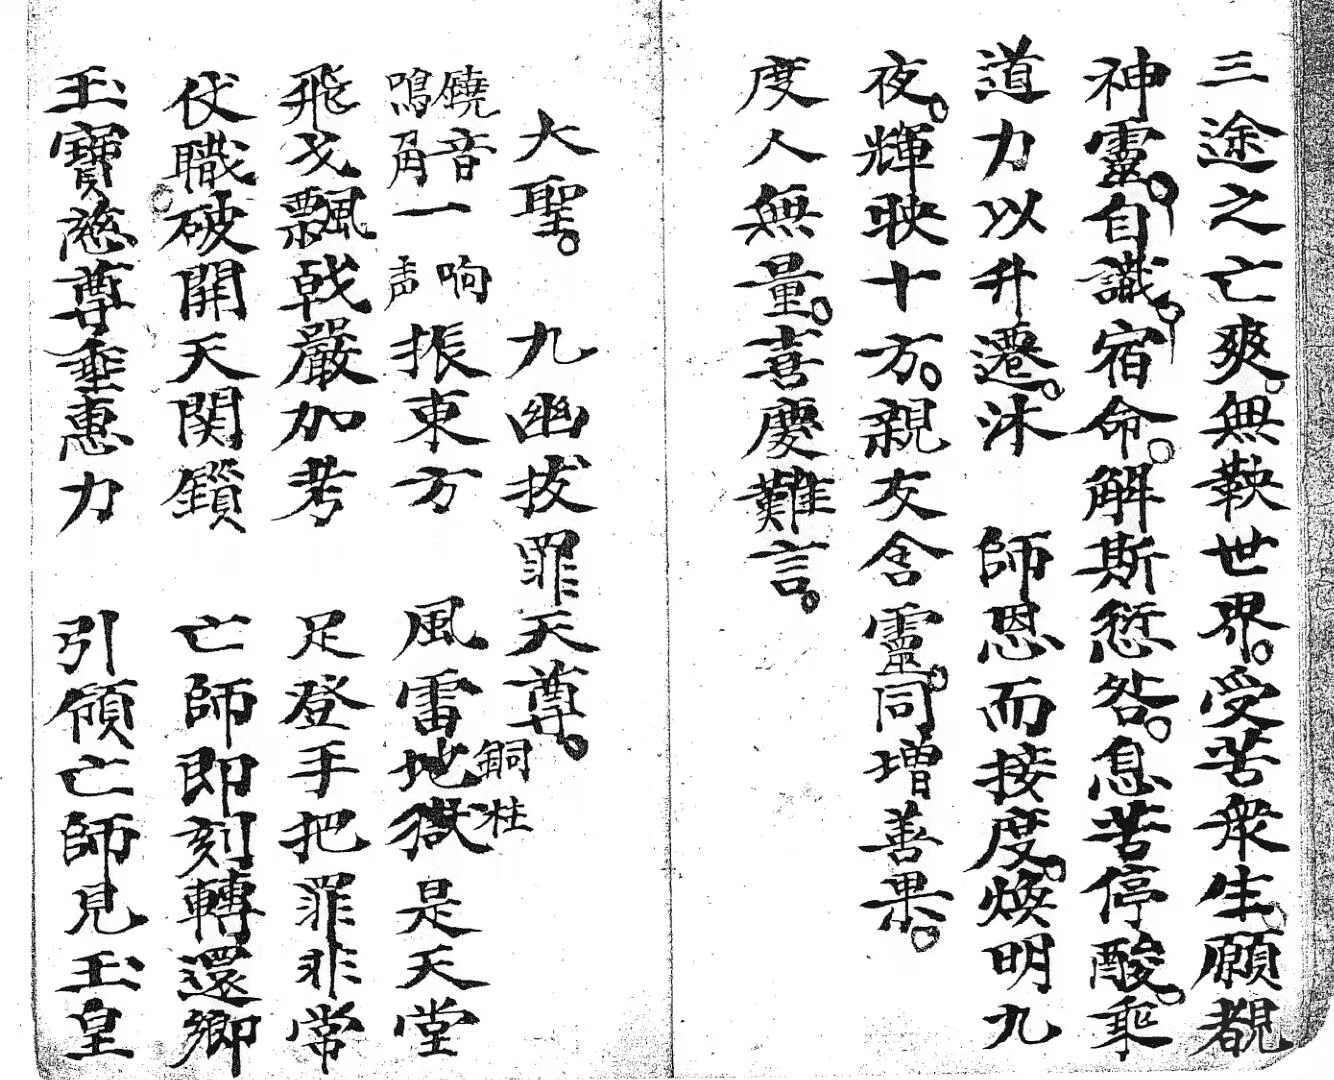 三途之亡爽。無鞅世界。受苦衆生。願覩
神靈。自識。宿命。解斯愆咎。息苦停酸。乘
道力以升遷。沐　師恩而接度。煥明九
夜。輝映十方。親友含靈。同增善果。
度人無量。喜慶難言。
大聖。九幽拔罪天尊。
鐃音一响
鳴角一声
振東方　風雷地獄是天堂
銅柱
飛戈飄戟嚴加考　足登手把罪非常
仗職破開天関鎖　亡師即刻轉還鄉
玉寶慈尊垂惠力　引領亡師見玉皇